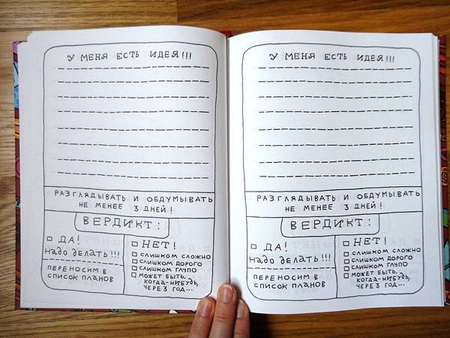 У МЕНЯ ЕСТЬ ИДЕЯ!!!
РАЗГЛЯДЫВАТЬ И ОБДУМЫВАТЬ
НЕ МЕНЕЕ 3 ДНЕЙ!
ВЕРДИКТ:
ДА!
НАДО ДЕЛАТЬ!!!
ПЕРЕНОСИМ В
СПИСОК ПЛАНОВ
НЕТ!
СЛИШКОМ СЛОЖНО
СЛИШКОМ ДОРОГО
СЛИШКОМ ГЛУПО
МОЖЕТ БЫТЬ,
КОГДА-НИБУДЬ,
ЧЕРЕЗ ГОД...
У МЕНЯ ЕСТЬ ИДЕЯ!!!
РАЗГЛЯДЫВАТЬ И ОБДУМЫВАТЬ
НЕ МЕНЕЕ 3 ДНЕЙ!
ВЕРДИКТ:
ДА!
НАДО ДЕЛАТЬ!!!
ПЕРЕНОСИМ В
СПИСОК ПЛАНОВ
НЕТ!
СЛИШКОМ СЛОЖНО
СЛИШКОМ ДОРОГО
СЛИШКОМ ГЛУПО
МОЖЕТ БЫТЬ,
КОГДА-НИБУДЬ,
ЧЕРЕЗ ГОД...